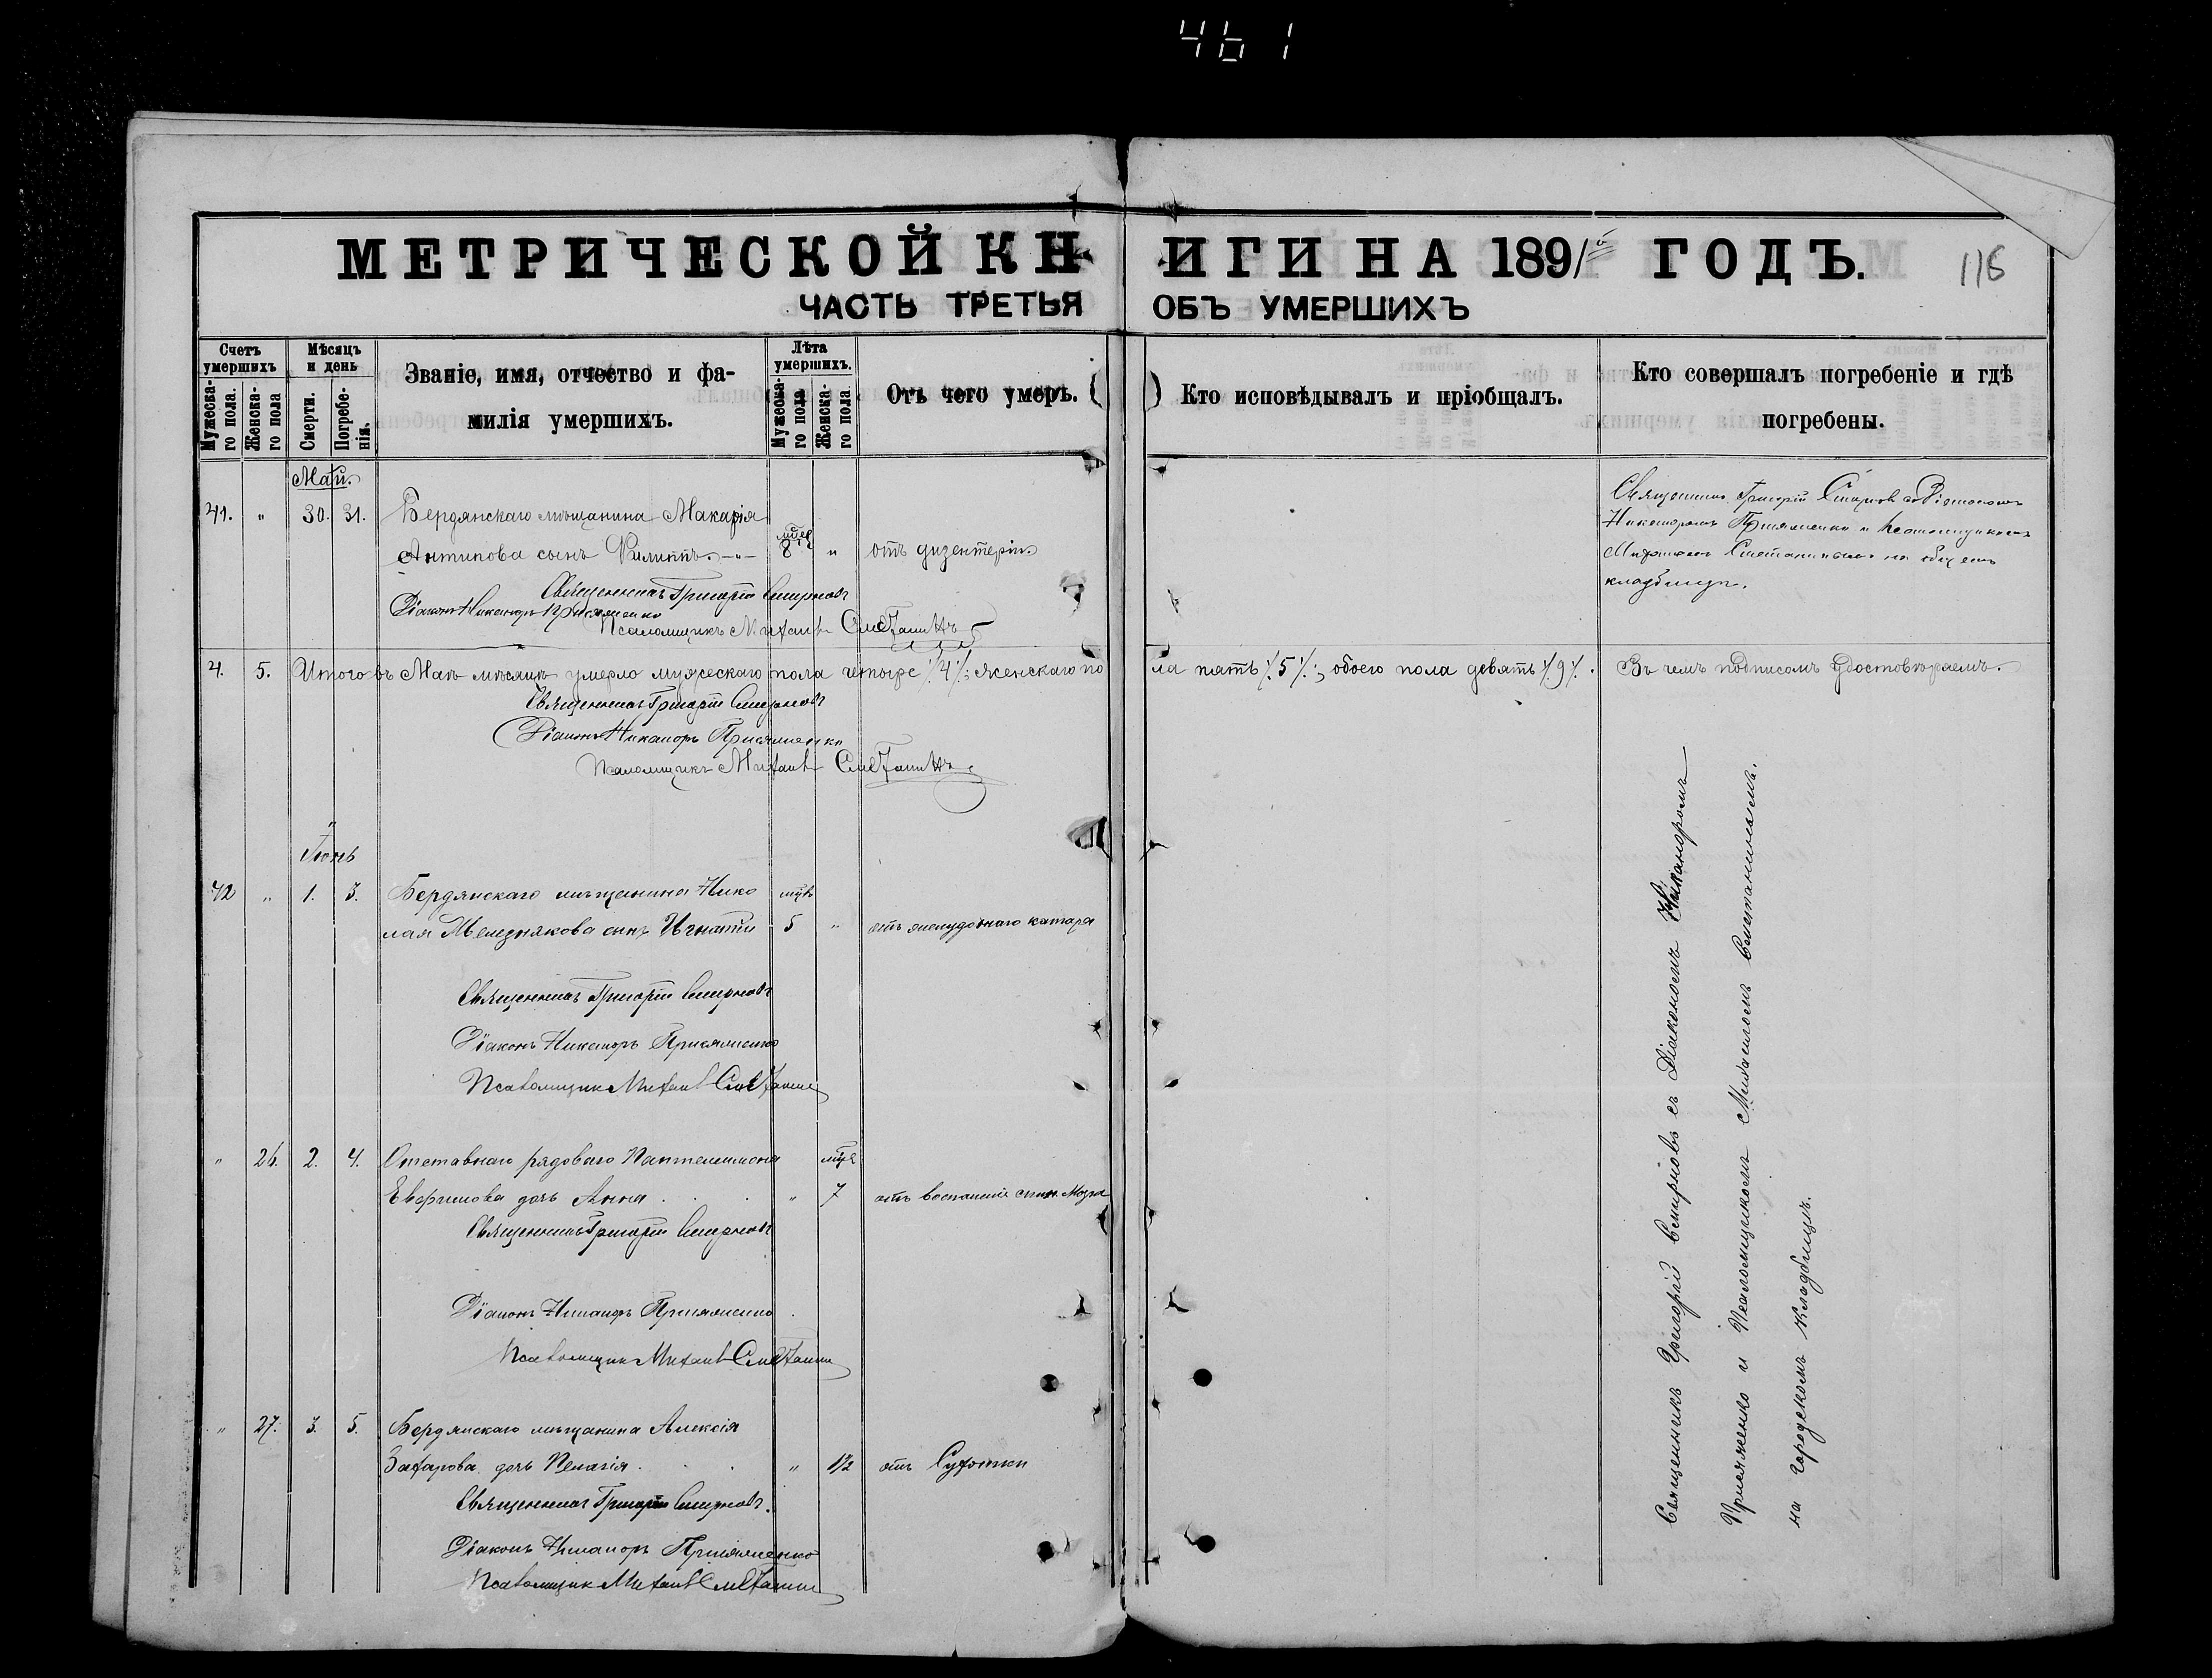 461
МЕТРИЧЕСКОЙ КНИГИ НА 1891й ГОДЪ.
116
ЧАСТЬ ТРЕТЬЯ ОБЪ УМЕРШИХЪ
Счетъ умершихъ
Мужеска-го пола.
Женска-го пола
Мѣсяцъ и день
Смерти.
Погребе-нія.
Званіе, имя, отчество и фа-
милія умершихъ.
Лѣта умершихъ.
Мужеска-го пола
Женска-го пола
Отъ чего умеръ.
Кто исповѣдывалъ и пріобщалъ.
Кто совершалъ погребеніе и гдѣ
погребены.
Май.
41. " 30. 31. Бердянскаго мѣщанина Макарія
Антипова сынъ Филиппъ. 8 " отъ дизентеріи
Священникъ Григорій Смирновъ
Діаконъ Никаноръ Присяженко
Псаломщикъ Михаилъ Сметанинъ
Священникъ Григорій Смирновъ съ Діакономъ
Никаноромъ Присяженко и Псаломщикомъ
Михаиломъ Сметанинымъ на общемъ
кладбищѣ.
4. 5. Итого въ Маѣ мѣсяцѣ умерло мужескаго пола четыре /4/; женскаго пола пять /5/; обоего пола девять /9/. Въ чемъ подписомъ удостовѣряемъ.
Священникъ Григорій Смирновъ
Діаконъ Никаноръ Присяженко
Псаломщикъ Михаилъ Сметанинъ
Іюнь
42 " 1. 3. Бердянскаго мѣщанина Нико
лая сынъ Игнатій 5 " отъ желудочнаго катара
Священникъ Григорій Смирновъ
Діаконъ Никаноръ Присяженко
Псаломщикъ Михаилъ Сметанинъ
" 26. 2. 4. Отставнаго рядоваго Пантелеимона
Ефимова дочь Анна " 7 отъ воспаленія спин. мозга
Священникъ Григорій Смирновъ
Діаконъ Никаноръ Присяженко
Псаломщикъ Михаилъ Сметанинъ
" 27. 3. 5. Бердянскаго мѣщанина Алексія
Захарова дочь Пелагія " 1½ отъ Сухотки
Священникъ Григорій Смирновъ.
Діаконъ Никаноръ Присяженко
Псаломщикъ Михаилъ Сметанинъ
Священникъ Григорій Смирновъ съ Діакономъ Никаноромъ
Присяженко и Псаломщикомъ Михаиломъ Сметанинымъ.
на Городскомъ Кладбищѣ.